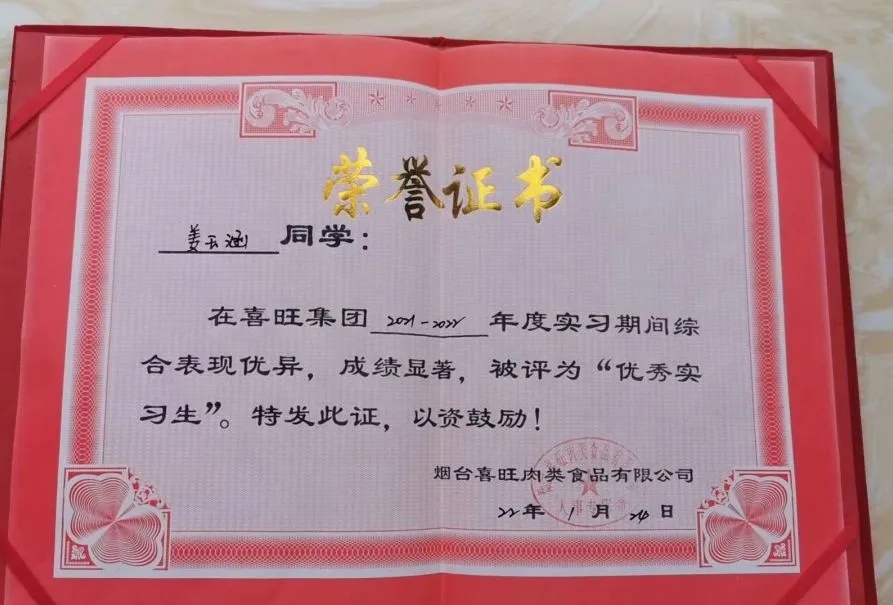 荣誉证书
姜云涵同学：
在喜旺集团2021-2022年度实习期间综
合表现优异，成绩显著，被评为“优秀实
习生”。特发此证，以资鼓励！
烟台喜旺肉类食品有限公司
22年1月24日